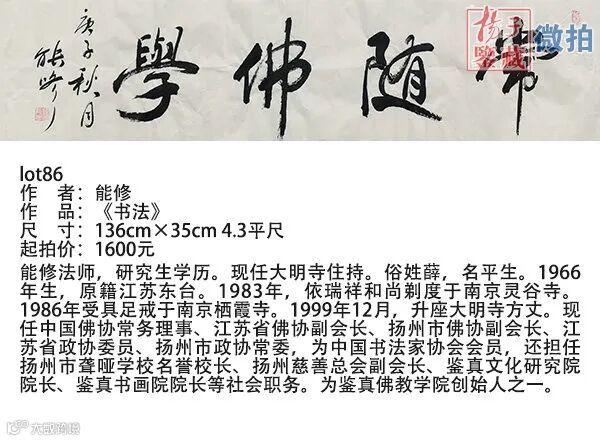 常随佛學
庚子秋月
能修
扬子
鉴藏
微拍
lot86
作 者：能修
作 品：《书法》
尺 寸：136cm×35cm 4.3平尺
起拍价：1600元
能修法师，研究生学历。现任大明寺住持。俗姓薛，名平生。1966
年生，原籍江苏东台。1983年，依瑞祥和尚剃度于南京灵谷寺。
1986年受具足戒于南京栖霞寺。1999年12月，升座大明寺方丈。现
任中国佛协常务理事、江苏省佛协副会长、扬州市佛协副会长、江
苏省政协委员、扬州市政协常委，为中国书法家协会会员，还担任
扬州市聋哑学校名誉校长、扬州慈善总会副会长、鉴真文化研究院
院长、鉴真书画院院长等社会职务。为鉴真佛教学院创始人之一。
大咖微展